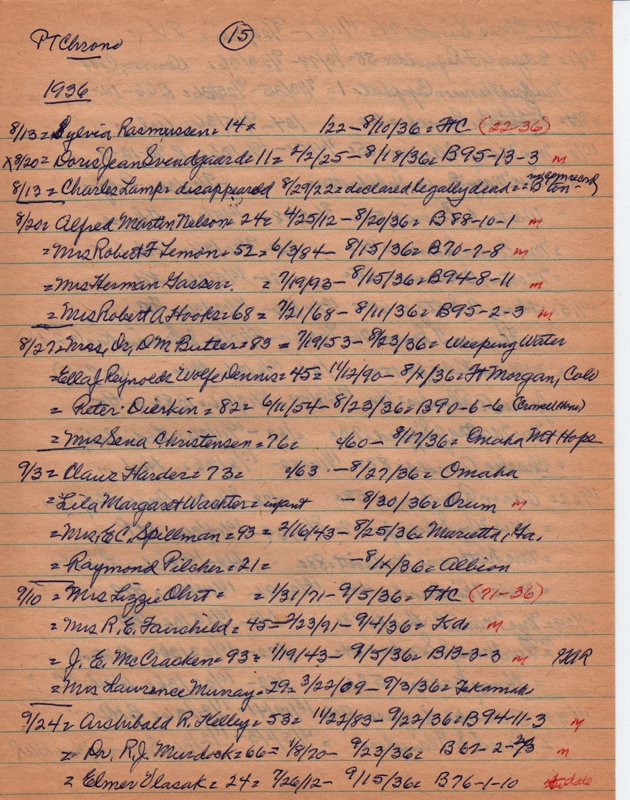 PT Chrono (15)
1936
8/13 = Sylvia Rasmussen = 14 = /22 - 8/10/36 = FHC (22-36)
x8/20 = Doris Jean Svendgaard = 11 = 2/2/25 - 8/18/36 = B95-13-3 m
8/13 = Charles Lamp = disappeared 8/29/22 = declared legally dead = = no cem record
8/20 = Alfred Martin Nelson = 24 = 4/25/12 - 8/20/36 = B88-10-1 m
= Mrs Robert F Lemon = 52 = 6/3/84 - 8/15/36 = B70-7-8 m
= Mrs Herman Gasser = 7/19/93 - 8/15/36 = B94-8-11 m
= Mrs Robert A Hooks = 68 = 7/21/68 - 8/11/36 = B95-2-3 m
8/27 = Mrs, Dr, D M Butler = 83 = 7/19/53 - 8/23/36 = Weeping Water
= Ella J Reynolds Wolfe Dennis = 45 = 11/2/90 - 8/x/36 = Ft Morgan, Colo
= Peter Dierkin = 82 = 6/11/54 - 8/23/36 = B90-6-6 (Crowell Home)
= Mrs Sena Christensen = 76 = /60 - 8/17/36 = Omaha Mt Hope
9/3 = Claus Harder = 73 = /63 - 8/27/36 = Omaha
= Lila Margaret Wachter = infant - 8/30/36 = Orum m
= Mrs, E C, Spillman = 93 = 2/16/43 - 8/25/36 = Marietta, Ga,
= Raymond Pilcher = 21 = - 8/x/36 = Albion
9/10 = Mrs Lizzie Ohrt = = 1/31/71 - 9/5/36 = FHC (71-36)
= Mrs R. E. Fairchild = 45 = 7/23/91 - 9/4/36 = Ka m
= J. E. McCracken = 93 = 1/19/43 - 9/5/36 = B13-3-3 m GAR
= Mrs Lawrence Murray = 29 = 3/22/09 - 9/3/36 = Tekamah
9/24 = Archibald R. Kelley = 53 = 11/22/83 - 9/22/36 = B94-11-3 m
= Dr, R. J. Murdock = 66 = 1/8/70 - 9/23/36 = B67-2-2/3 m
= Elmer Vlasak = 24 = 7/26/12 - 9/15/36 = B76-1-10